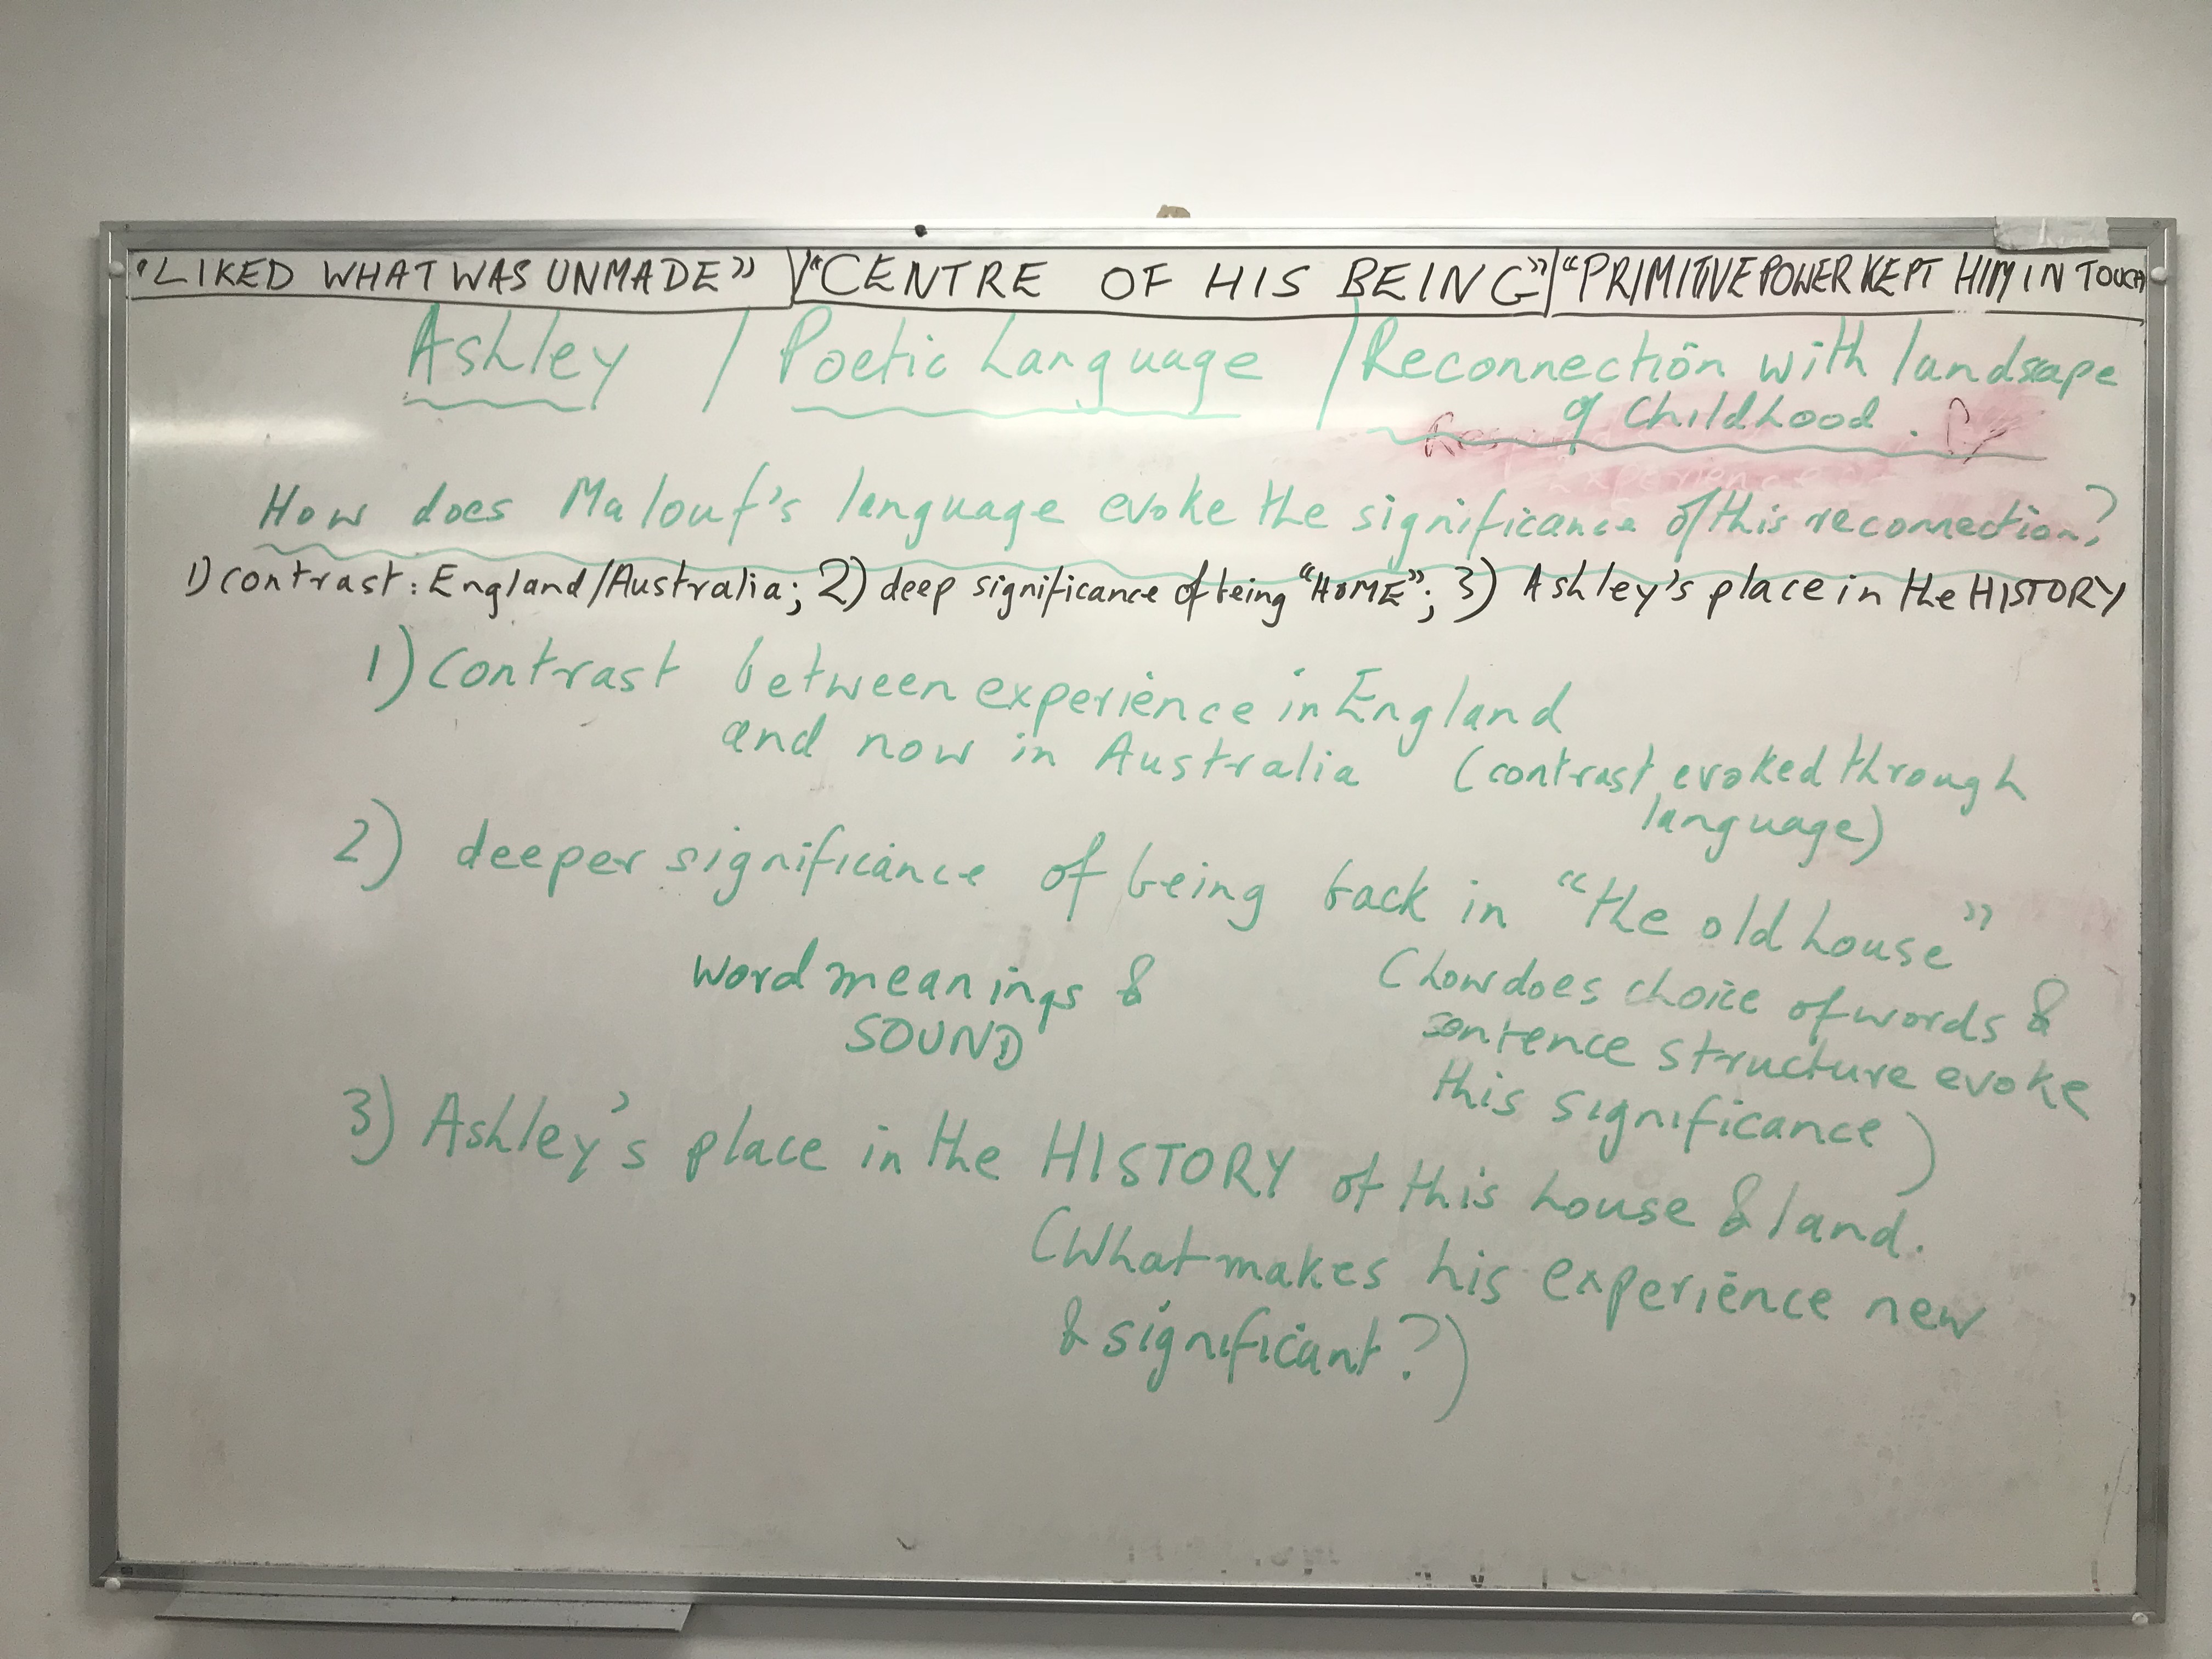 "LIKED WHAT WAS UNMADE" "CENTRE OF HIS BEING" "PRIMITIVE POWER KEPT HIM IN TOUCH
Ashley / Poetic Language / Reconnection with landscape
of Childhood.
How does Malouf's language evoke the significance of this reconnection?
1) contrast: England/Australia; 2) deep significance of being "HOME"; 3) Ashley's place in the HISTORY
1) Contrast between experience in England
and now in Australia (contrast evoked through
language)
2) deeper significance of being back in "the old house"
word meanings & (how does choice of words &
SOUND sentence structure evoke
this significance)
3) Ashley's place in the HISTORY of this house & land.
(What makes his experience new
& significant?)